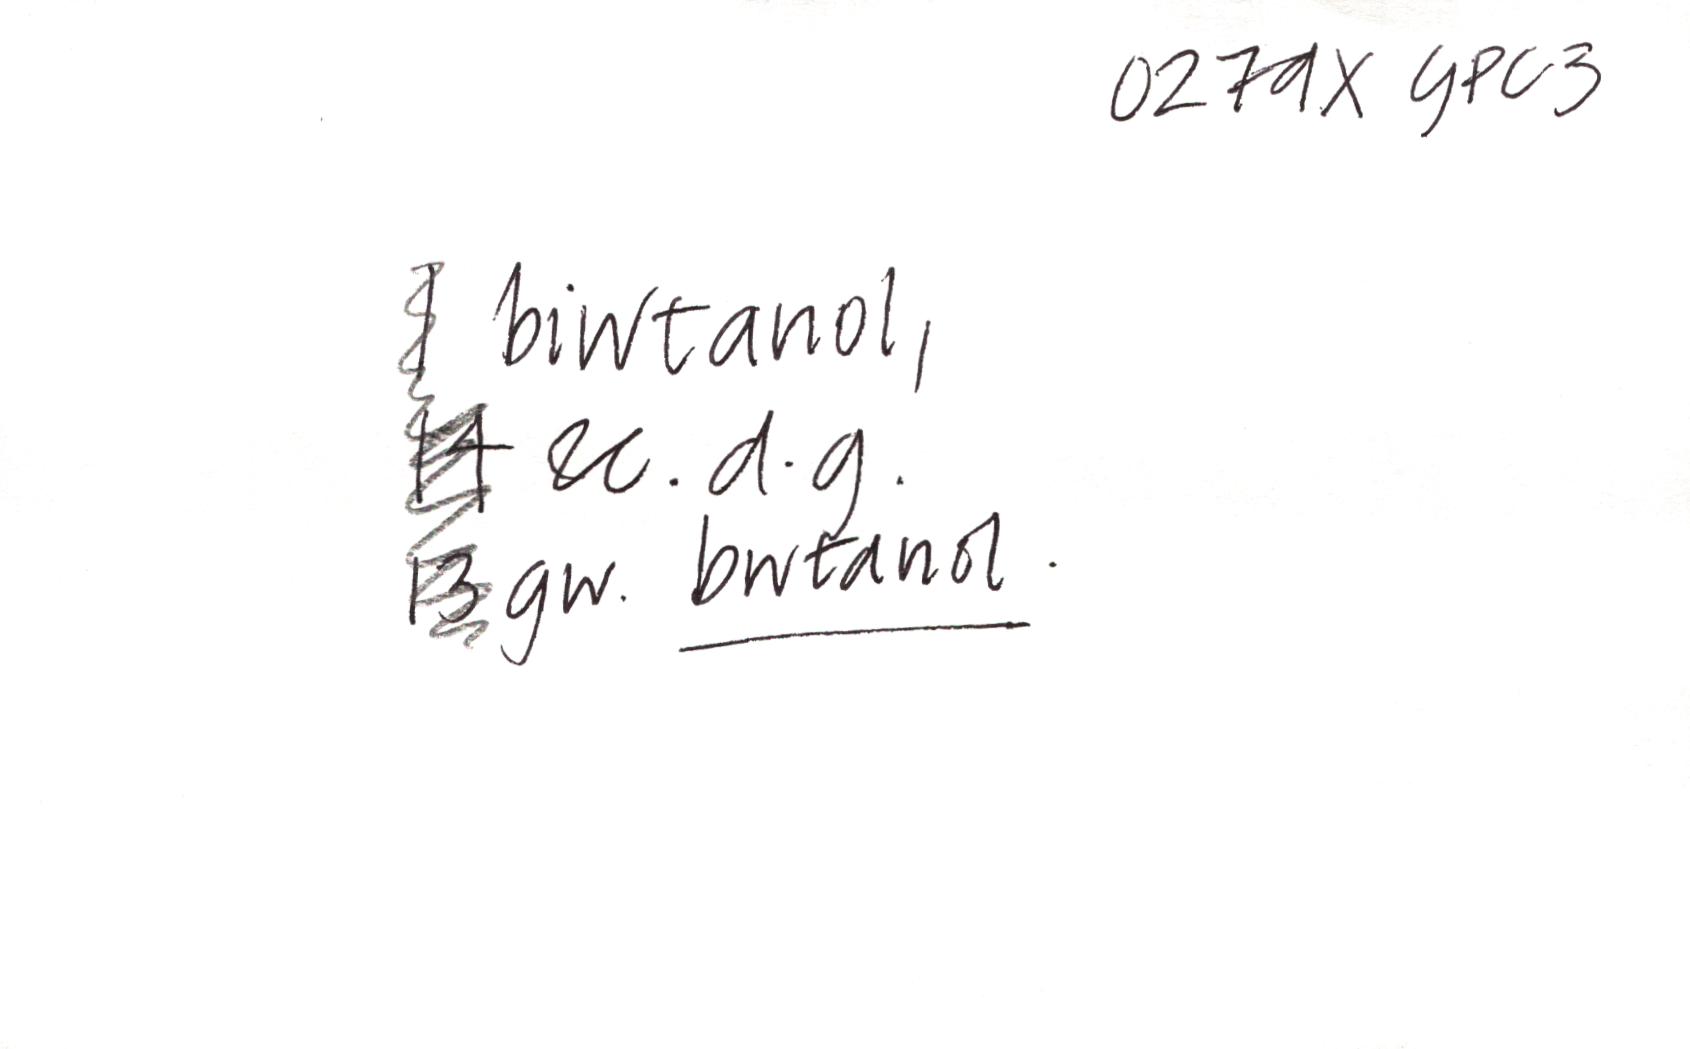 0279X GPC3
1 biwtanol,
14 &c. d.g.
13 gw. bwtanol.